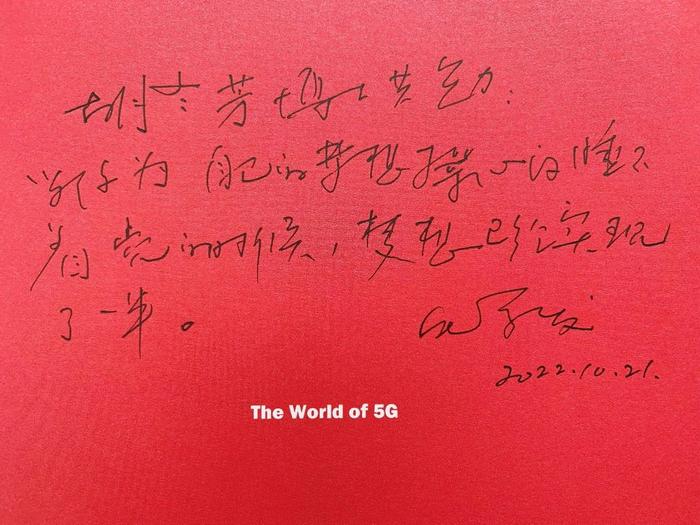 胡 芳博士共勉:
当你为自己的梦想操心的睡不
着觉的时候，梦想已经实现
了一半。
2022.10.21.
The World of 5G